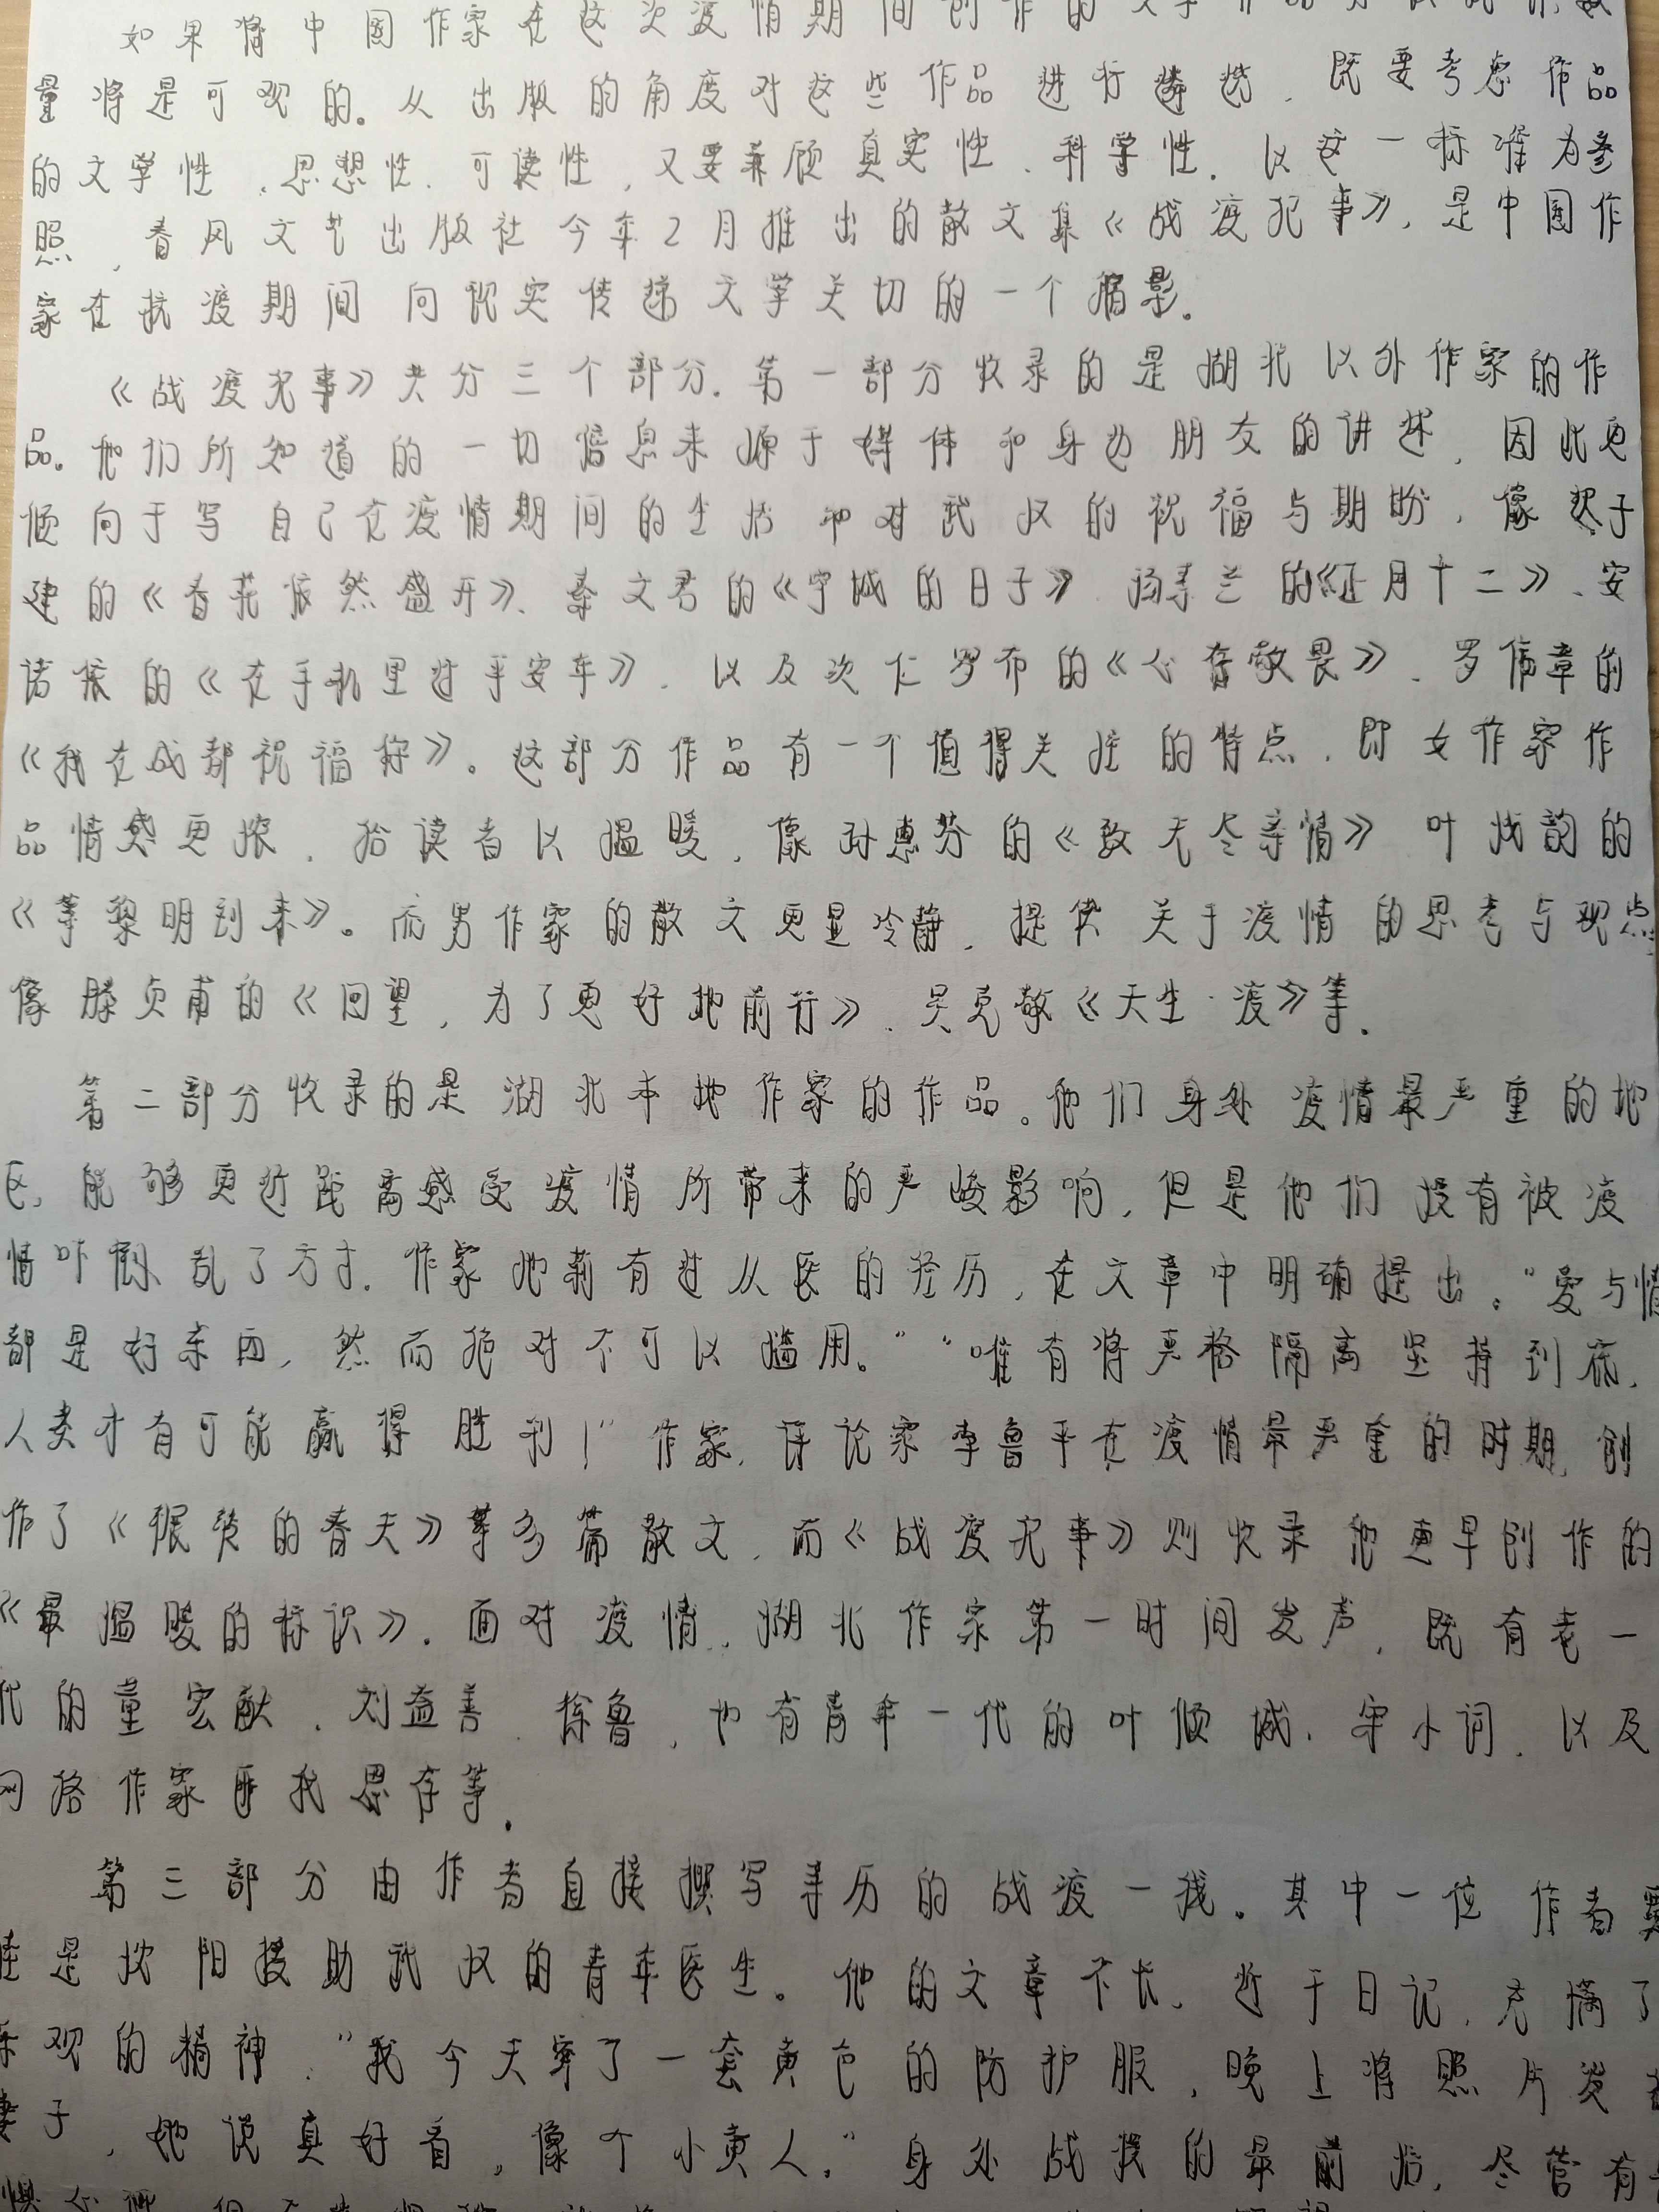 如果将中国作家在这次疫情期间创作的文学作品
量将是可观的。从出版的角度对这些作品进行遴选，既要考虑作品
的文学性、思想性、可读性，又要兼顾真实性、科学性。以这一标准为参
照，春风文艺出版社今年2月推出的散文集《战疫纪事》，是中国作
家在抗疫期间向现实传递文学关切的一个缩影。
《战疫纪事》共分三个部分。第一部分收录的是湖北以外作家的作
品。他们所知道的一切信息来源于媒体和身边朋友的讲述，因此更
倾向于写自己在疫情期间的生活和对武汉的祝福与期盼，像迟子
建的《春花依然盛开》、秦文君的《宁城的日子》、汤素兰的《正月十二》、安
诺依的《在手机里过平安年》，以及次仁罗布的《心存敬畏》、罗伟章的
《我在成都祝福你》。这部分作品有一个值得关注的特点，即女作家作
品情感更浓，给读者以温暖，像孙惠芬的《致无尽亲情》、叶浅韵的
《等黎明到来》。而男作家的散文更显冷静，提供关于疫情的思考与观点
像滕贞甫的《回望，为了更好地前行》、吴克敬《天生·疫》等。
第二部分收录的是湖北本地作家的作品。他们身处疫情最严重的地
区，能够更近距离感受疫情所带来的严峻影响，但是他们没有被疫
情吓倒、乱了方寸。作家池莉有过从医的经历，在文章中明确提出。"爱与情
都是好东西，然而绝对不可以滥用。""唯有将严格隔离坚持到底，
人类才有可能赢得胜利！"作家、评论家李鲁平在疫情最严重的时期，创
作了《狠狠的春天》等多篇散文，而《战疫纪事》则收录他更早创作的
《最温暖的标识》。面对疫情，湖北作家第一时间发声，既有老一
代的董宏猷、刘益善、徐鲁，也有青年一代的叶倾城、宋小词，以及
网络作家匪我思存等。
第三部分由作者直接撰写亲历的战疫一线。其中一位作者
是沈阳援助武汉的青年医生。他的文章不长，近于日记，充满了
乐观的精神，"我今天穿了一套黄色的防护服，晚上将照片发
妻子，她说真好看，像个小黄人。"身处战疫的最前沿，尽管有